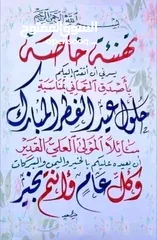 بسم الله الرحمن الرحيم
تهنئة خاصة
يسرني أن أتقدم إليكم
بأصدق التهاني بمناسبة
حلول عيد الفطر المبارك
سائلا المولى العلي القدير
أن يعيده عليكم بالخير واليمن والبركات
وكل عام وأنتم بخير